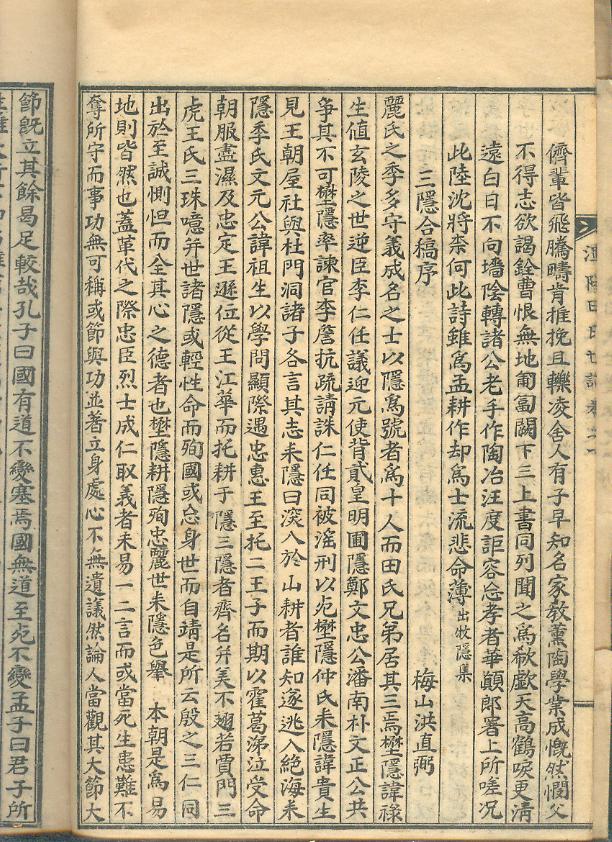 儕輩皆飛騰疇肯推挽且轢凌舍人有子早知名家教薰陶學業成慨然憫父
不得志欲謁銓曹恨無地匍匐闕下三上書同列聞之爲欷歔天高鶴唳更淸
遠白日不向墻陰轉諸公老手作陶冶汪度詎容怂孝者華顚郞署上所嗟况
此陸沈將柰何此詩雖爲孟耕作却爲士流悲命薄出牧隱集
三隱合稿序
梅山洪直弼
麗氏之季多守義成名之士以隱爲號者爲十人而田氏兄弟居其三焉壄隱諱祿
生値玄陵之世逆臣李仁任議迎元使背貳皇明圃隱鄭文忠公潘南朴文正公共
爭其不可壄隱率諫官李詹抗疏請誅仁任同被滛刑以死壄隱仲氏耒隱諱貴生
見王朝屋社與杜門洞諸子各言其志耒隱曰深入於山耕者誰知遂逃入絶海耒
隱季氏文元公諱祖生以學問顯際遇忠惠王至托二王子而期以霍葛涕泣受命
朝服盡濕及忠㝎王遜位從王江華而托耕于隱三隱者齊名幷美不翅若賈門三
虎王氏三珠噫幷世諸隱或輕性命而殉國或忘身世而自靖是所云殷之三仁同
出於至誠惻怛而全其心之德者也壄隱耕隱殉忠麗世耒隱色擧 本朝是爲易
地則皆然也蓋革代之際忠臣烈士成仁取義者未易一二言而或當死生患難不
奪所守而事功無可稱或節與功並著立身處心不無遺議然論人當觀其大節大
節旣立其餘易足較哉孔子曰國有道不變塞焉國無道至死不變孟子曰君子所